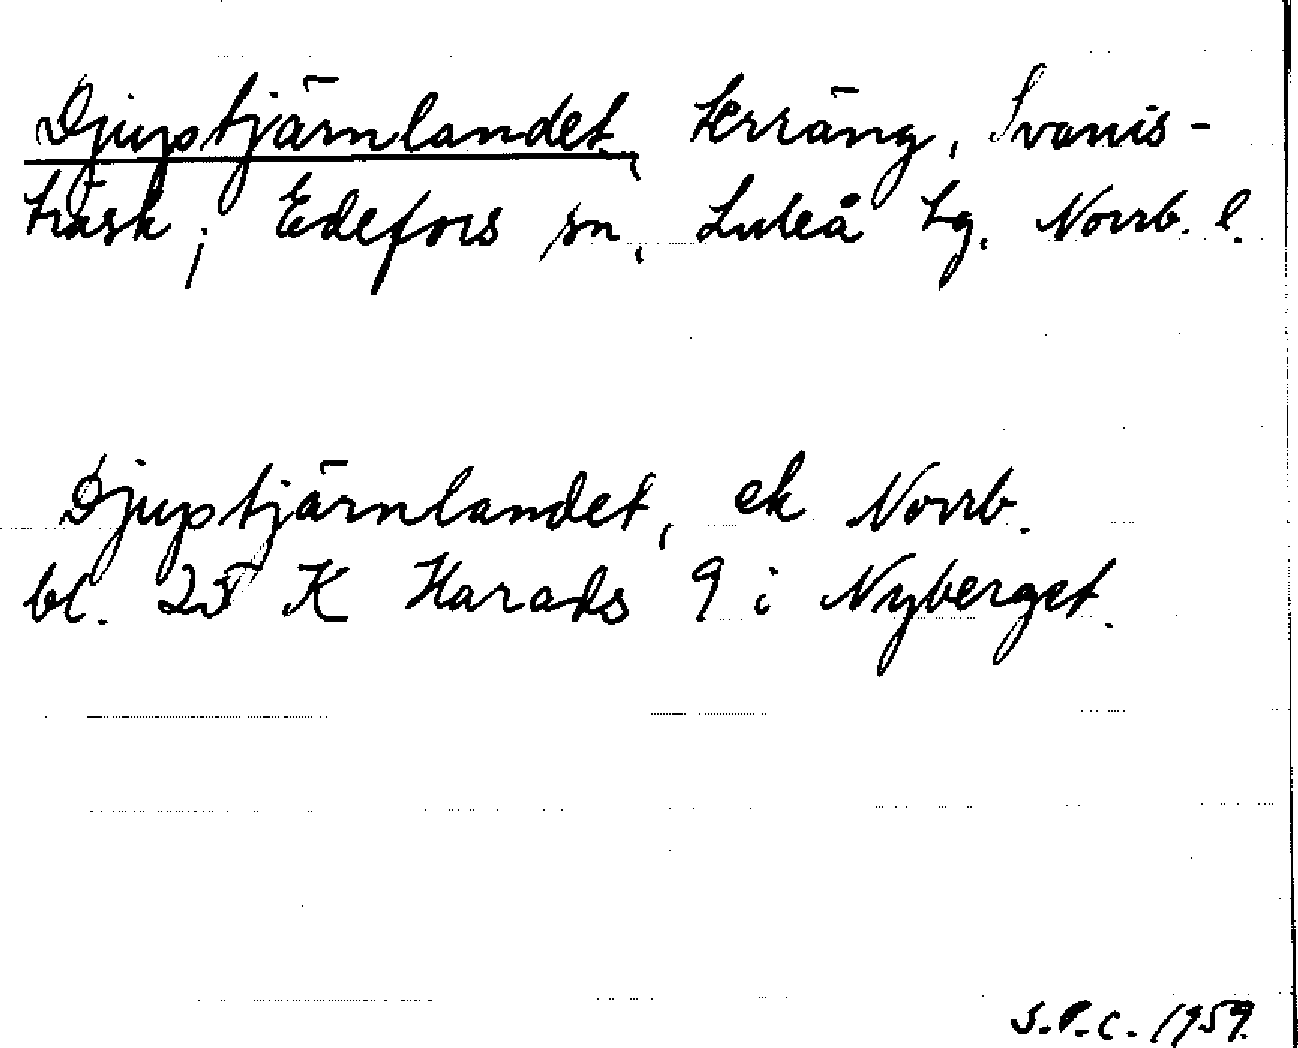 Djuptjärnlandet, terräng, Svanis-
träsk; Edefors sn, Luleå tg. Norrb. l.
Djuptjärnlandet, ek Norrb.
bl. 25 K Harads 9 i Nyberget.
S.P.C. 1959.